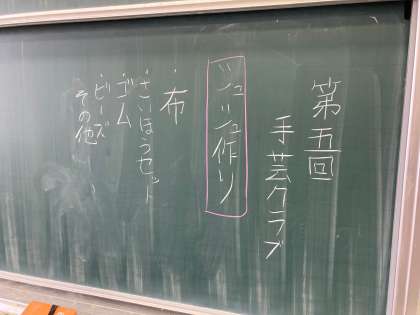 第五回
手芸クラブ
シュシュ作り
・布
・さいほうセット
・ゴム
・ビーズ
その他